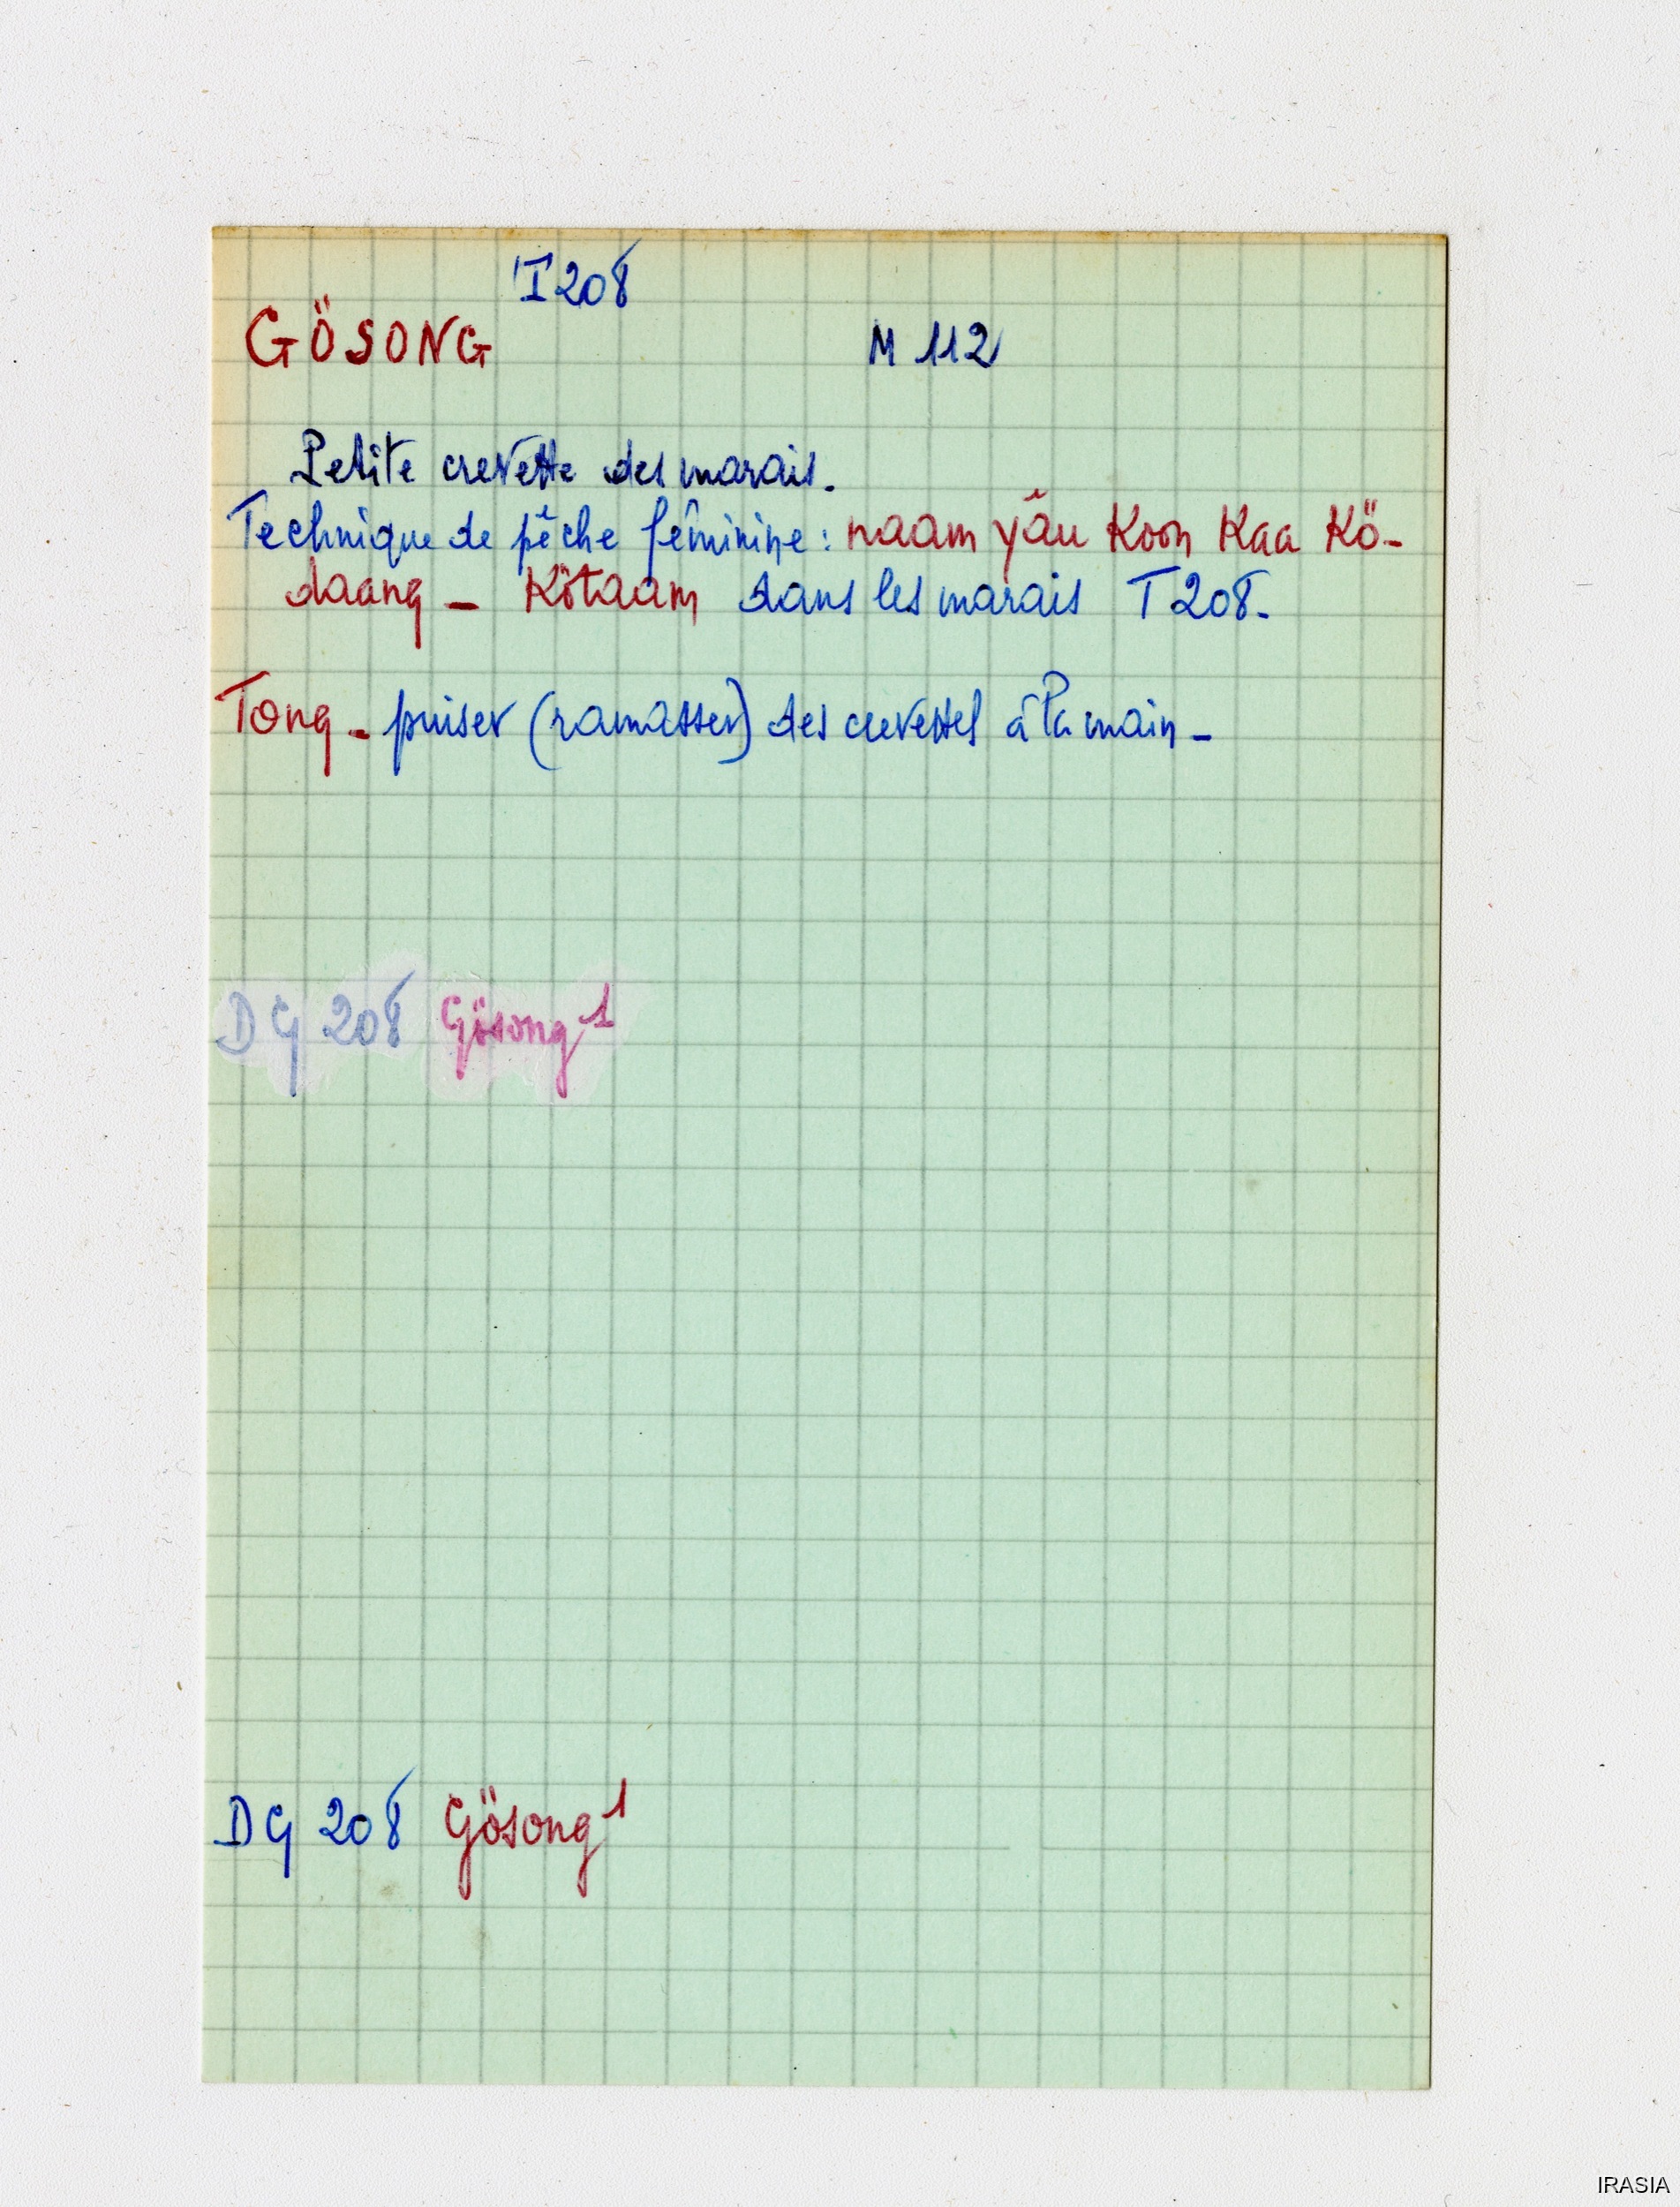 T208
GÖSONG M 112
Petite crevette des marais.
Technique de pêche féminine : naam yâu Koon Kaa Kö-
daang - Kötaam dans les marais T208-
Tong - puiser (ramasser) des crevettes à la main -
DG 208 Gösong 1
DG 208 Gösong 1
IRASIA